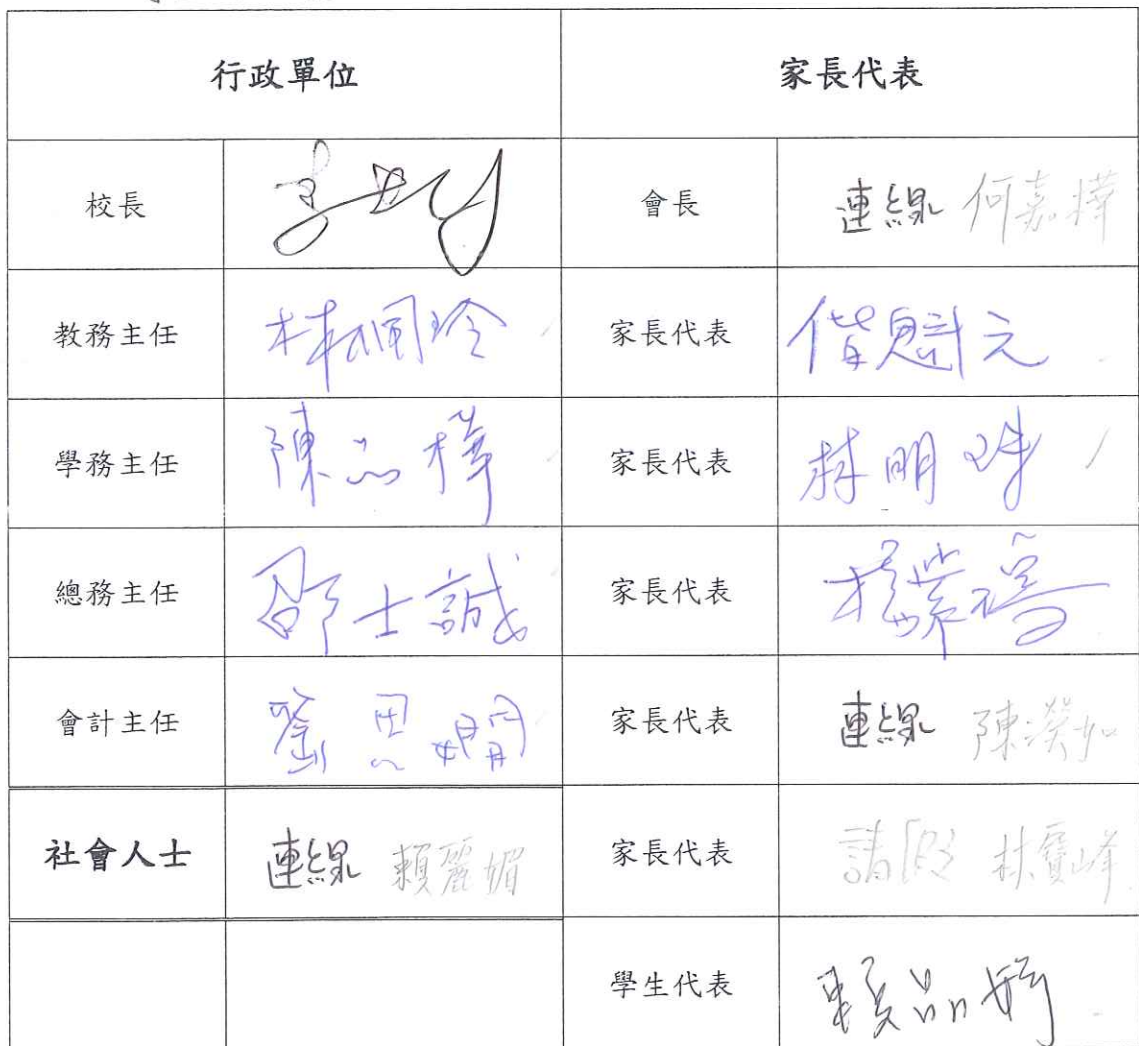 行政單位 家長代表
校長 會長 連線 何嘉樺
教務主任 林佩玲 家長代表
學務主任 陳品樺 家長代表 林明珠
總務主任 邵士誠 家長代表
會計主任 劉恩嫺 家長代表 連線 陳渼如
社會人士 連線 賴麗媚 家長代表 請假 林寶峰
學生代表 賴品妤